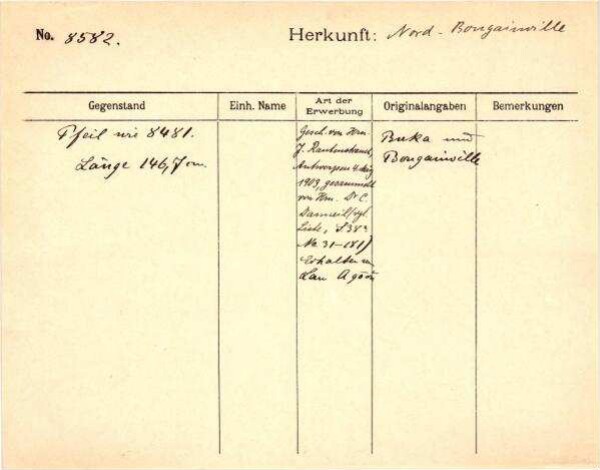 No. 8582. Herkunft: Nord-Bougainville
Gegenstand Einh. Name Art der Erwerbung Originalangaben Bemerkungen
Pfeil wie 8481.
Länge 146,7 cm.
Gesch. von Hrn.
J. Rautenstrauch,
Antwerpen 4.
1909, gesammelt
von Hrn. Dr C.
vgl.
Liste, S 383
No 31-181)
Erhalten
Buka und
Bougainville